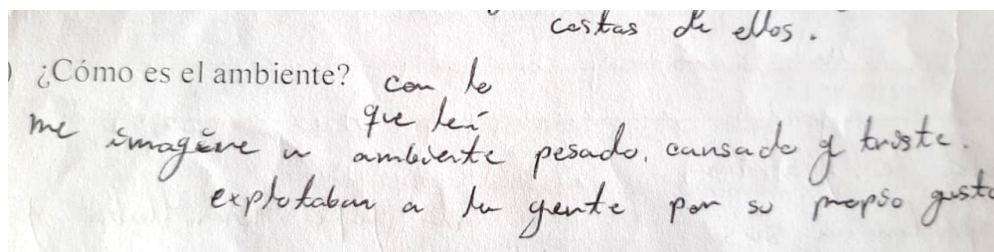 costas de ellos.
) ¿Cómo es el ambiente? con lo
que leí
me imagine u ambiente pesado, cansado y triste.
explotaban a la gente por su propio gusto